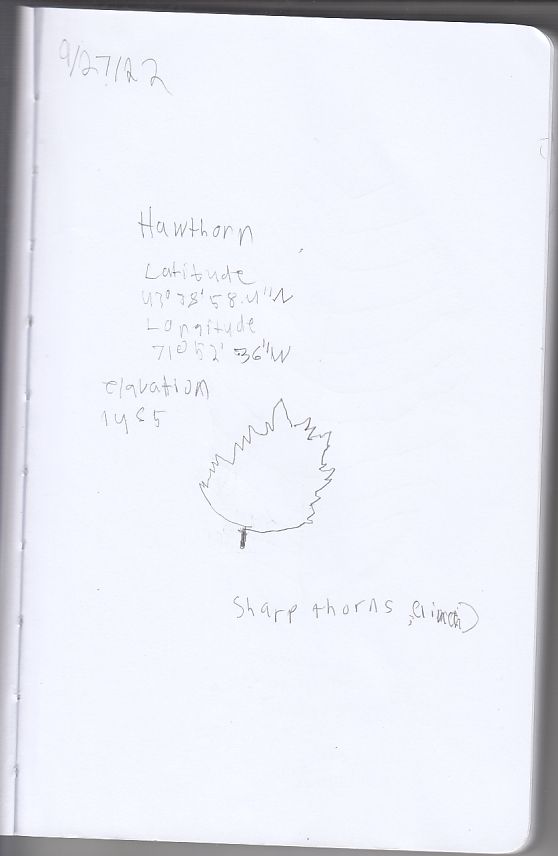 9/27/22
Hawthorn
Latitude
43° 38' 58.4"N
Longitude
71° 52' 36"W
elavation
1485
Sharp thorns